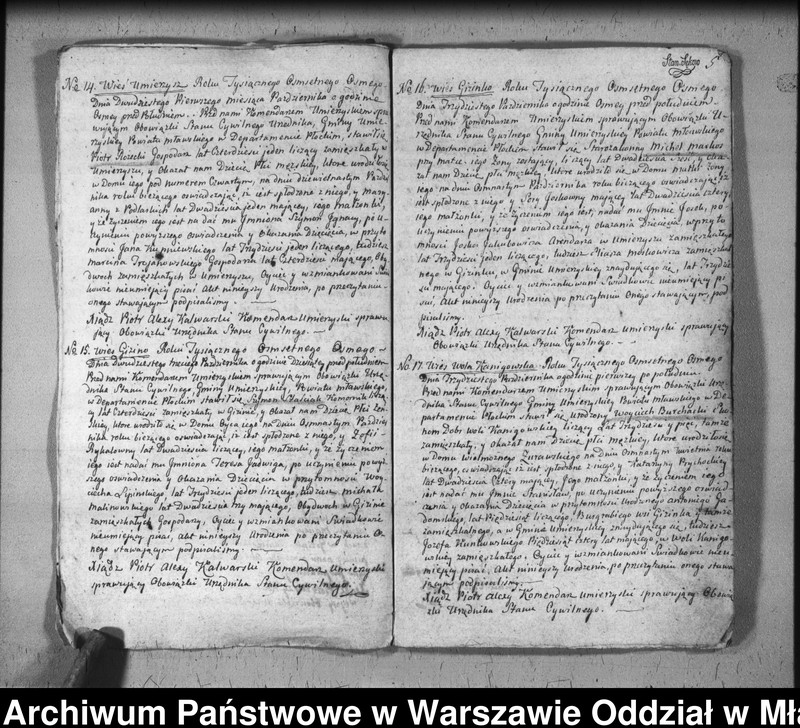 No 14. Wieś Umierysz Roku Tysiącznego Osmsetnego Osmego
Dnia Dwudziestego Pierwszego miesiąca Pazdziernika o godzinie
Osmey przed Południem. Przed nami Komendarzem Umieryskim spra-
wuiącym Obowiązki Stanu Cywilnego Urzędnika, Gminy Umie-
ryskiey Powiatu mławskiego w Departamencie Płockim, stawił się
Piotr Gospodarz lat Czterdzieści ieden liczący zamieszkały w
Umieryszu, y Okazał nam Dziecię Płci męzkiey, ktore urodziło się
w Domu iego pod numerem Czwartym, na dniu dziewiętnastym Pazdzier-
nika roku bieżącego oswiadczaiąc, iż iest spłodzone z niego, y Mary-
anny z lat Dwadzieścia ieden maiącey, iego małżonki,
y że życzeniem iego iest nadać mu Jmiona Szymon Jgnacy, po u-
czynieniu powyższego oswiadczenia y Okazaniu Dziecięcia, w przyto-
mności Jana lat Trzydzieści ieden liczącego, tudziesz
Marcina Gospodarza lat Czterdzieści maiącego, Oby-
dwoch zamieszkałych w Umieryszu, Oyciec y wzmiankowani Swia-
dkowie nieumieiący pisać Akt ninieyszy Urodzenia, po przeczytaniu
onego stawaiącym podpisalismy.
Xiądz Piotr Alexy Kalwarski Komendarz Umieryski sprawu-
iący Obowiązki Urzędnika Stanu Cywilnego.
No 15. Wieś Giżino Roku Tysiącznego Osmsetnego Osmego
Dnia Dwudziestego trzeciego Pazdziernika o godzinie Dziesiątey przed południem
Przed nami Komendarzem Umieryskim sprawuiącym Obowiązki Urzę-
dnika Stanu Cywilnego Gminy Umieryskiey, Powiatu mławskiego,
w Departamencie Płockim stawił się Szymon Komornik liczą-
cy lat Czterdzieści zamieszkały w Giżinie, y Okazał nam Dziecię Płci Żeń-
skiey, ktore urodziło się w Domu Oyca iego na dniu Osmnastym Pazdzier-
nika roku bieżącego oswiadczaiąc iż iest spłodzone z niego, y Zofii
lat Dwadzieścia liczącey, iego małżonki, y że życzeniem
iego iest nadać mu Jmiona Teresa Jadwiga, po uczynieniu powyż-
szego oswiadczenia y Okazania Dziecięcia w przytomności Woy-
ciecha Lipinskiego, lat Trzydzieści ieden liczącego, tudziesz Michała
Malinowskiego lat Dwadzieścia trzy maiącego, Obydwoch w Giżinie
zamieszkałych Gospodarzy, Oyciec y wzmiankowani Swiadkowie
nieumieiący pisać, Akt ninieyszy Urodzenia po przeczytaniu O-
nego stawaiącym podpisalismy.
Xiądz Piotr Alexy Kalwarski Komendarz Umieryski
sprawuiący Obowiązki Urzędnika Stanu Cywilnego.
5
No 16. Wieś Giżinko Roku Tysiącznego Osmsetnego Osmego
Dnia Trzydziestego Pazdziernika o godzinie Osmey przed południem.
Przed nami Komendarzem Umieryskim sprawuiącym Obowiązki U-
rzędnika Stanu Cywilnego Gminy Umieryskiey Powiatu mławskiego
w Departamencie Płockim stawił się Starozakonny Michał
przy matce iego Żony zostaiący, liczący lat Dwadzieścia y oka-
zał nam Dziecię płci męzkiey, ktore urodziło się w Domu matki żony
iego na dniu Osmnastym Pazdziernika roku bieżącego oswiadczaiąc iż
iest spłodzone z niego y maiącey lat Dwadzieścia cztery,
iego małżonki, y że życzeniem iego iest nadać mu Jmie Josek, po
uczynieniu powyższego oswiadczenia, y okazania Dziecięcia w przyto-
mności Joska Jakubowicza Arendarza w Umieryszu zamieszkałego
lat Trzydzieści ieden liczącego, tudziesz Moskowicza zamieszkał-
nego w Giżinku, w Gminie Umieryskiey znayduiącego się, lat Trzydzieści
maiącego. Oyciec y wzmiankowani Swiadkowie nieumieiący pi-
sać, Akt ninieyszy Urodzenia po przeczytaniu Onego stawaiącym, pod-
pisalismy.
Xiądz Piotr Alexy Kalwarski Komendarz Umieryski sprawuiący
Obowiązki Urzędnika Stanu Cywilnego.
No 17. Wieś Wola Kanigowska. Roku Tysiącznego Osmsetnego Osmego
Dnia Trzydziestego Pazdziernika o godzinie pierwszey po południu.
Przed nami Komendarzem Umieryskim sprawuiącym Obowiązki Urzę-
dnika Stanu Cywilnego Gminy Umieryskiey Powiatu Mławskiego w De-
partamencie Płockim stawił się Urodzony Woyciech
Dobr Woli Kanigowskiey liczący Lat Trzydzieści y pięć, tamże
zamieszkały, y okazał nam Dziecię płci męzkiey, ktore urodziło się
w Domu wielmożnego Żurawskiego na dniu Osmnastym kwietnia roku
bieżącego, oswiadczaiąc iż iest spłodzone z niego, y Katarzyny
lat Dwadzieścia Cztery maiącey, Jego małżonki, y że Życzeniem iego
iest nadać mu Jmie Stanisław, po uczynieniu powyższego oswiad-
czenia y Okazania Dziecięcia w przytomności Urodzonego Antoniego Za-
domskiego, lat Pięćdziesiąt liczącego, wsi Giżinka y tamże
zamieszkałego, a w Gminie Umieryskiey znayduiącego się, tudziesz
Jozefa Pięćdziesiąt cztery lat maiącego, w Woli Kanigo-
wskiey zamieszkałego. Oyciec y wzmiankowani Swiadkowie nieu-
mieiący pisać, Akt ninieyszy Urodzenia, po przeczytaniu onego stawa-
iącym podpisalismy.
Xiądz Piotr Alexy Komendarz Umieryski sprawuiący Obowią-
zki Urzędnika Stanu Cywilnego.
Archiwum Państwowe w Warszawie Oddział w Mł